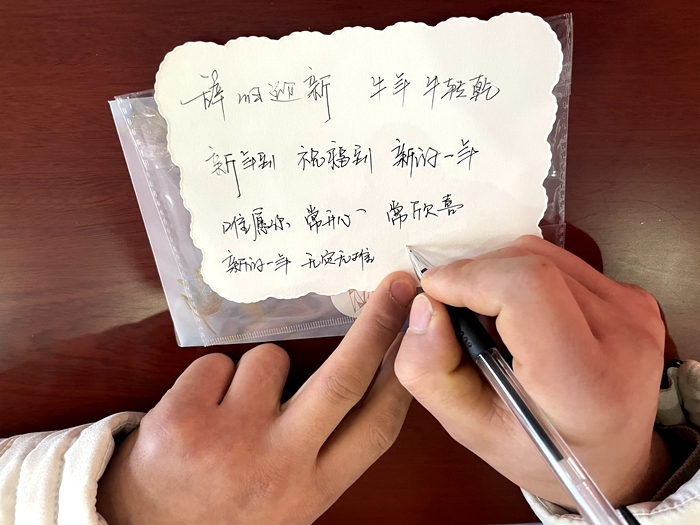 辞旧迎新 牛年牛转乾
新年到 祝福到 新的一年
唯愿你 常开心 常欣喜
新的一年 无灾无难